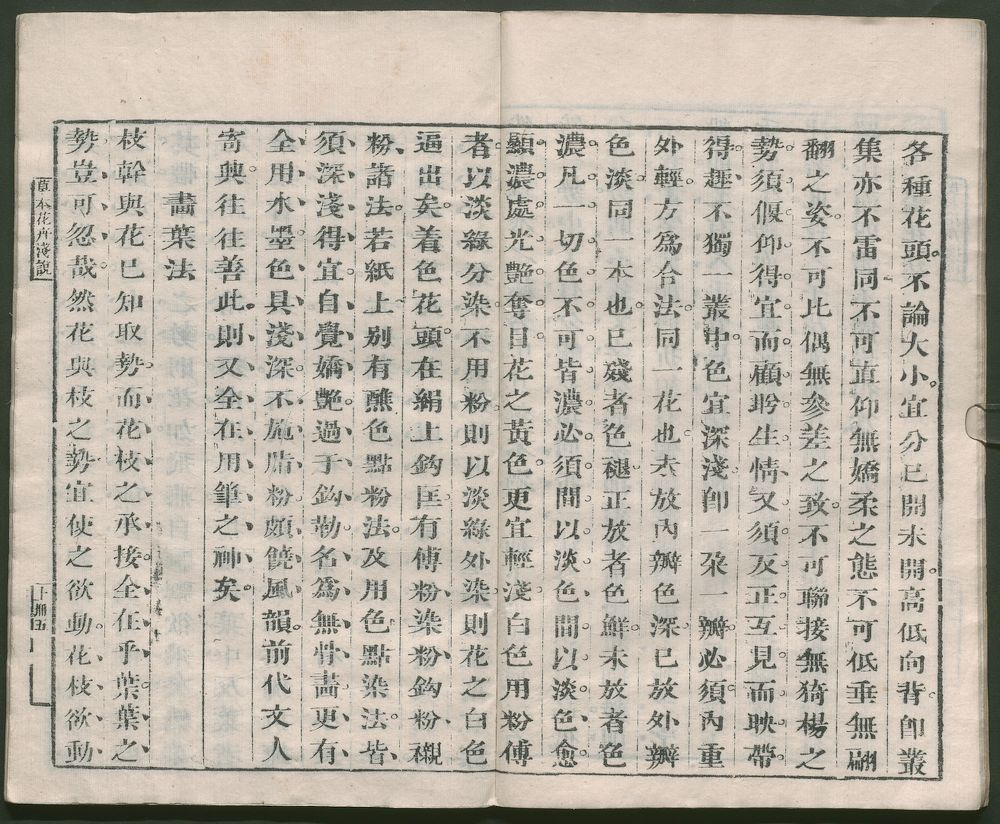 各種花頭。不論大小。宜分已開未開。高低向背。卽叢
集亦不雷同。不可直仰無嬌柔之態。不可低垂無翩
翻之姿。不可比偶無參差之致。不可聯接無猗楊之
勢。須偃仰得宜。而顧盻生情。又須反正互見。而映帶
得趣。不獨一叢中色宜深淺。卽一朶一瓣。必須內重
外輕。方為合法。同一花也。未放內瓣色深。已放外瓣
色淡。同一本也。已殘者色褪。正放者色鮮。未放者色
濃。凡一切色不可皆濃。必須間以淡色。間以淡色。愈
顯濃處光艷奪目。花之黃色。更宜輕淺。白色用粉傅
者。以淡綠分染。不用粉。則以淡綠外染。則花之白色
逼出矣。着色花頭。在絹上鈎匡。有傅粉、染粉、鈎粉、襯
粉、諸法。若紙上別有蘸色點粉法。及用色點染法。皆
須深淺得宜。自覺嬌艷過于鈎勒。名為無骨畫。更有
全用水墨。色具淺深。不施脂粉。頗饒風韻。前代文人
寄興。往往善此。則又全在用筆之神矣。
畫葉法
枝幹與花已知取勢。而花枝之承接。全在乎葉。葉之
勢豈可忽哉。然花與枝之勢。宜使之欲動。花枝欲動
草本花卉淺說
下冊五